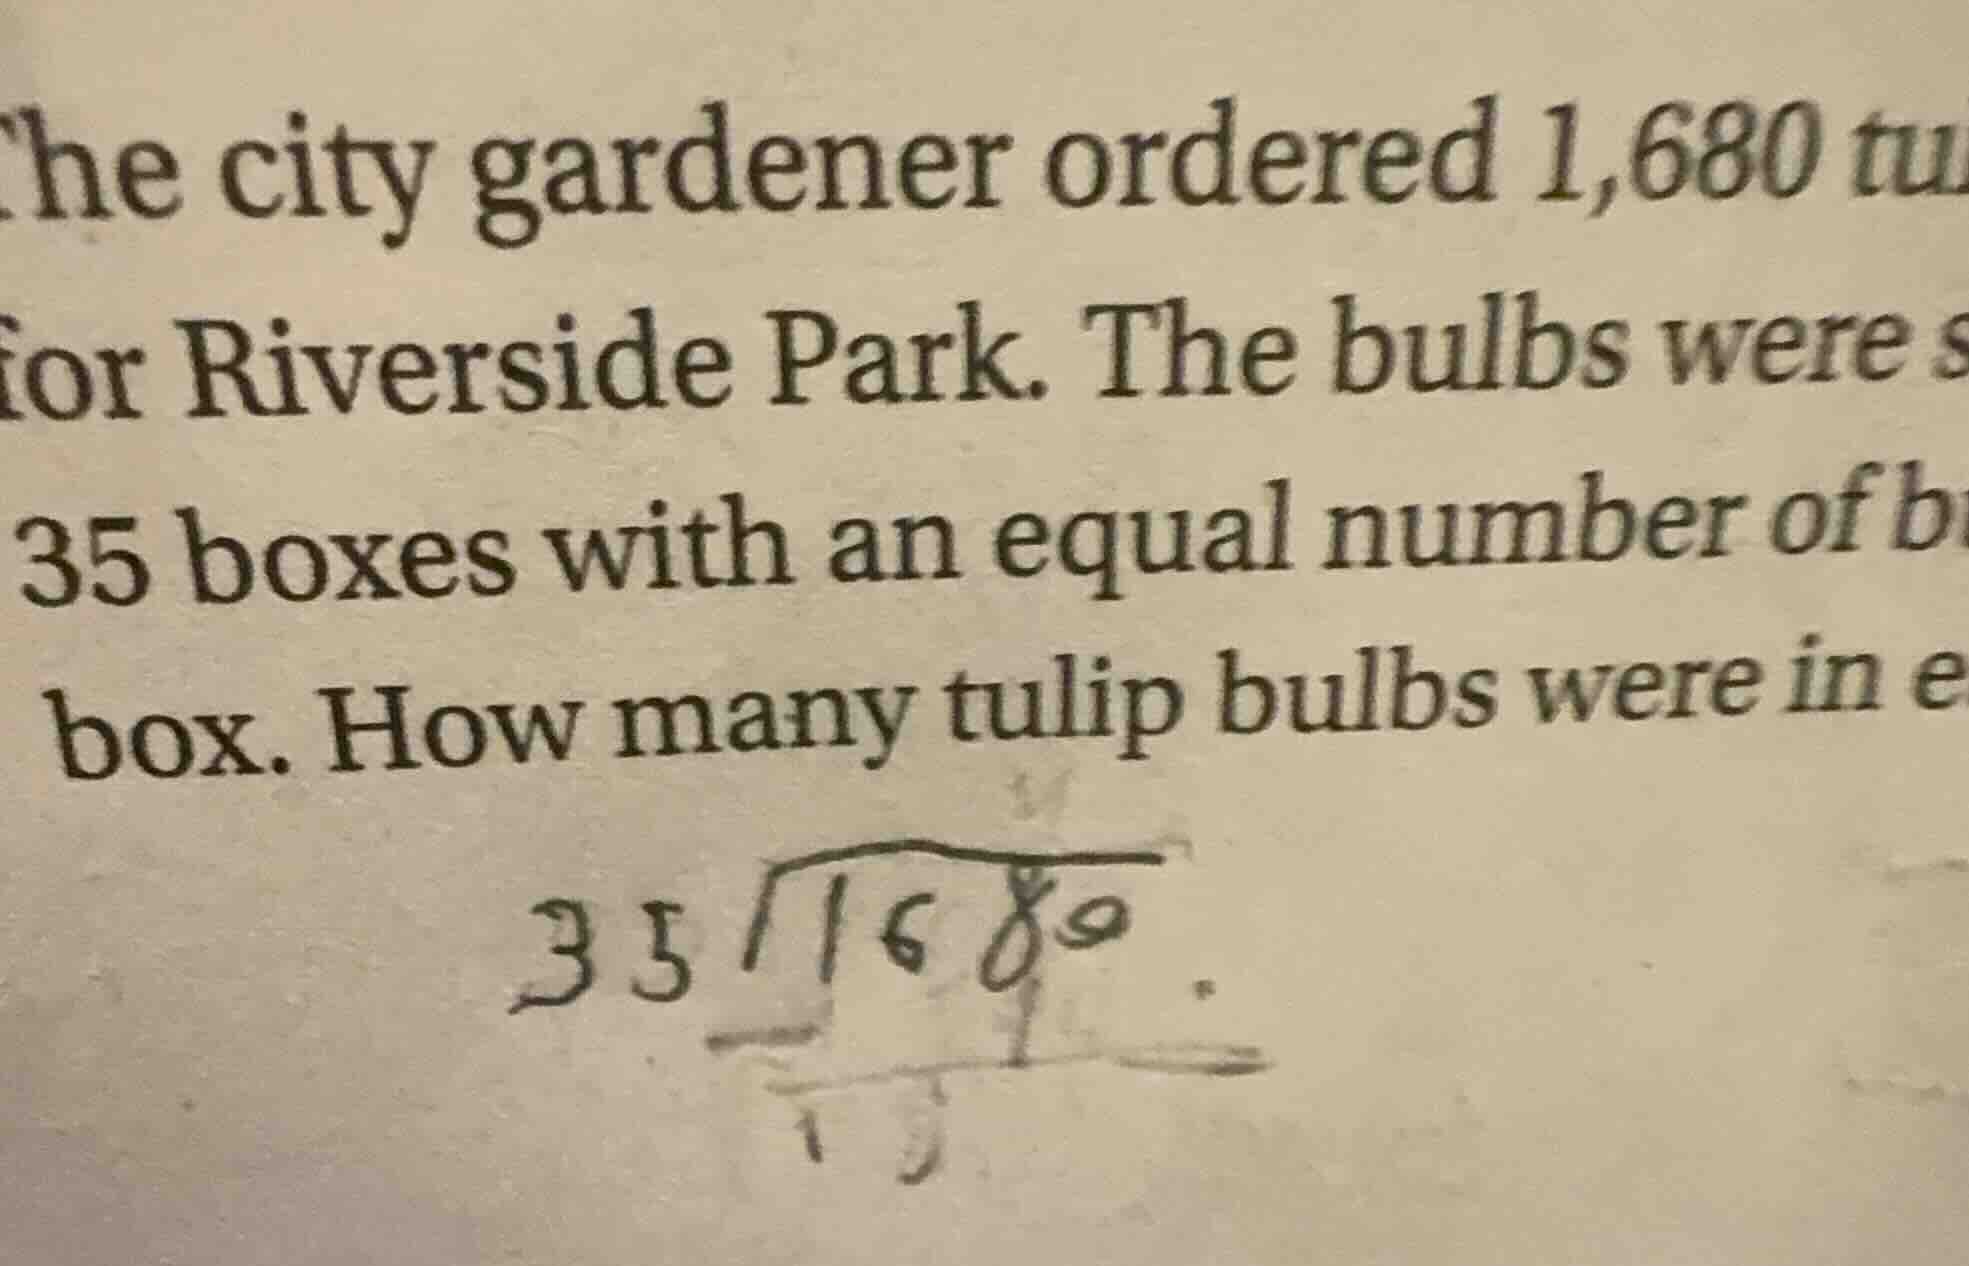 The city gardener ordered 1,680
for Riverside Park. The bulbs were
35 boxes with an equal number of
box. How many tulip bulbs were in
35 1680